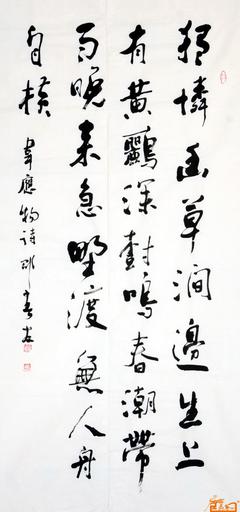 獨憐幽草澗邊生上
有黃鸝深樹鳴春潮帶
雨晚來急野渡無人舟
自橫
韋應物詩